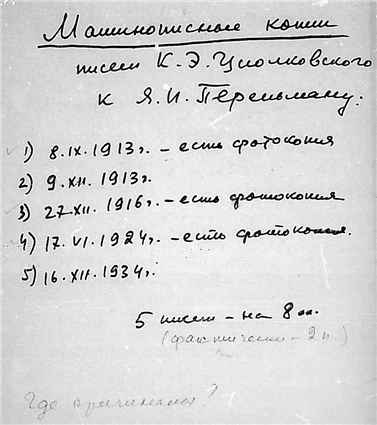 Машинописные копии
писем К. Э. Циолковского
к Я. И. Перельману:
1) 8.IX.1913г. – есть фотокопия
2) 9.XII.1913г.
3) 27.XII.1916г. – есть фотокопия
4) 17.VI.1924г. – есть фотокопия.
5) 16.XII.1934г.
5 писем – на 8 лл.
(фактически – 2 п.)
Где оригиналы?